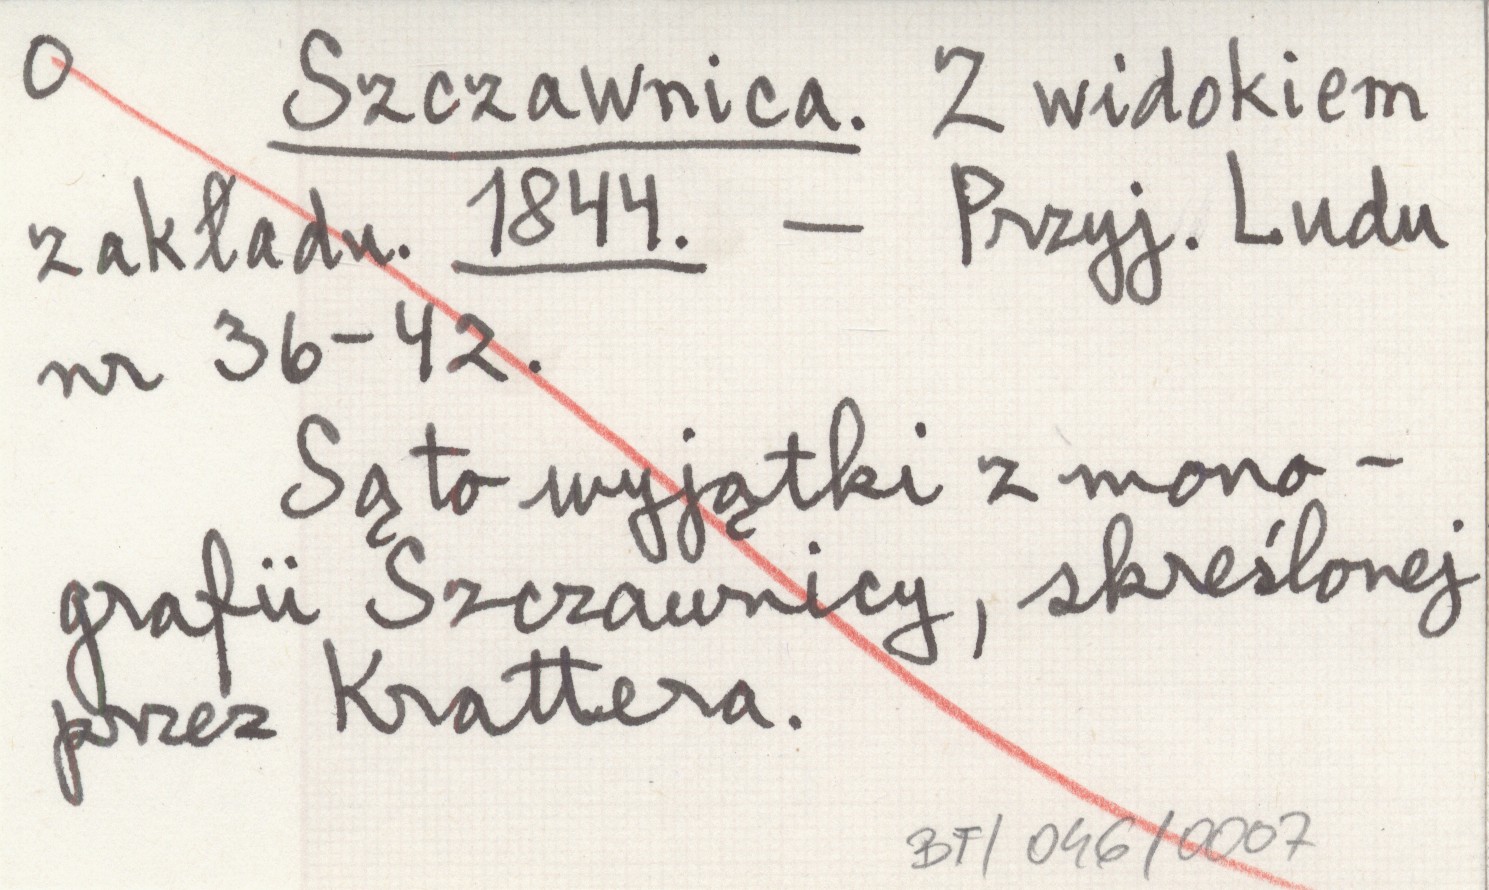 O Szczawnica. Z widokiem
zakładu. 1844. — Przyj. Ludu
nr 36-42.
Są to wyjątki z mono-
grafii Szczawnicy, skreślonej
przez Krattera.
BF/ 046/0007